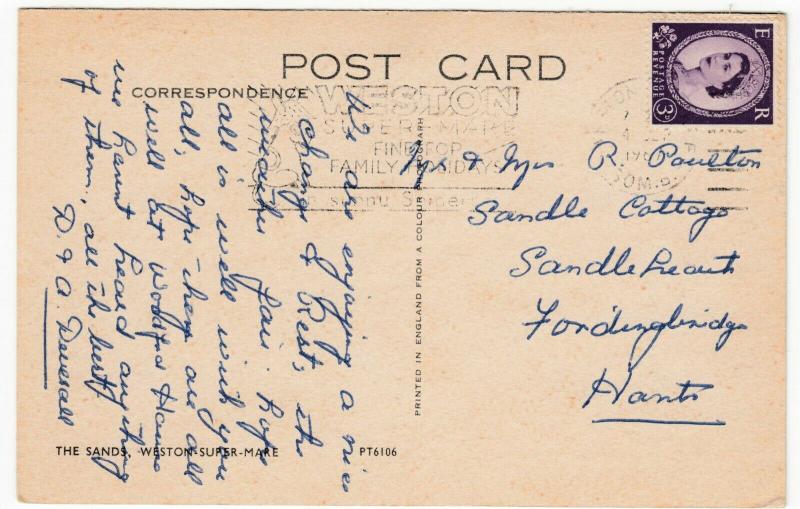 POST CARD
CORRESPONDENCE
WESTON
SUPER-MARE
FINEST OR
FAMILY HOLIDAYS
in sunny Somerset
E R
POSTAGE
REVENUE
3D
We are enjoying a nice
change & Rest, the
weather fair. hope
all is well with you
all, hope they are all
well at Woodford House
we havnt heard anything
of them, all the best
D. & A. Deverall
Mr & Mrs R. Poulton
Sandle Cottage
Sandleheath
Fordingbridge
Hants
PRINTED IN ENGLAND FROM A COLOUR PHOTOGRAPH
THE SANDS, WESTON-SUPER-MARE
PT6106